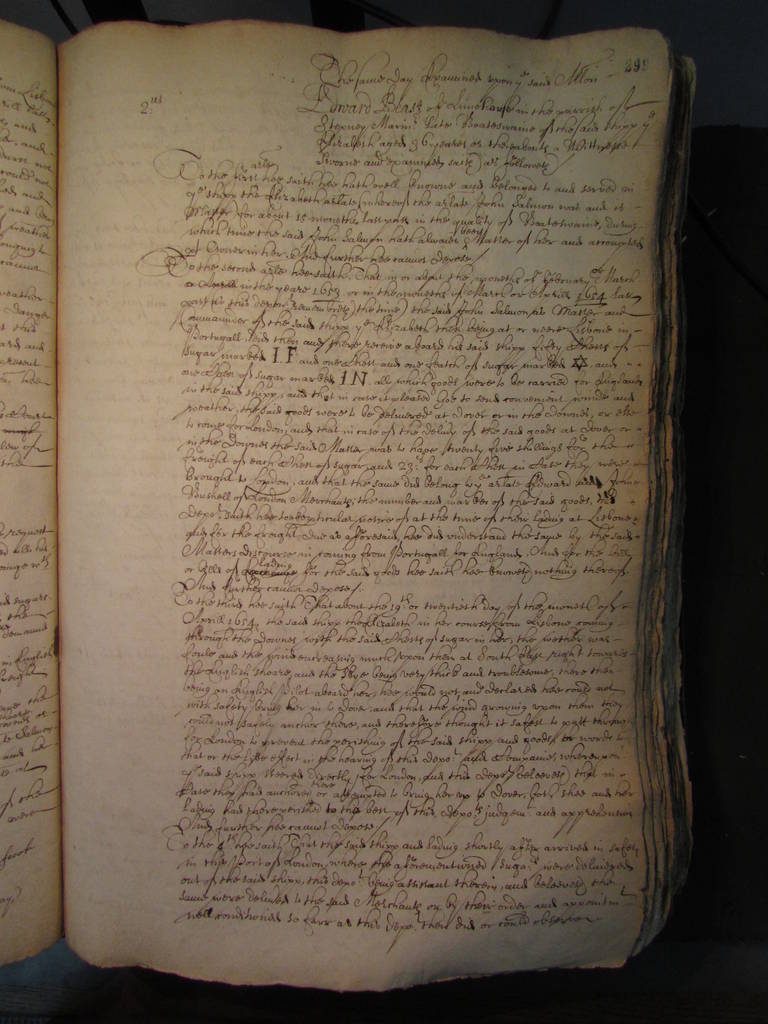 299
The same day Examined upon ye said Allon
2us
Edward Peast of Limehouse in the parrish of
Stepney Marinr late Boateswaine of the said shipp ye
Elizabeth aged 36 yeares or thereabouts a Wittnesse
sworne and examined saith as followeth
To the first arle hee saith hee hath well knowne and belonged to and served in
ye shipp the Elizabeth arlate (whereof the arlate John Salmon was and is
Master for about 15 monethes last past in the quality of Boateswaine, during
which time the said John Salmon hath alwaies been Master of her and accompted
pt Owner in her And further hee cannot depose
To the second arle hee saith That in or about the moneths of February or March
in the yeare 1653 or in the moneths of March or Aprill 1654 last
past (as this depont remembreth the time) the said John Salmon as Master and
Commander of the said shipp ye Elizabeth then being at or neere Lisbone in
Portugall did then and there receive aboard his said shipp fifty Chests of
Sugar marked I F and one Chest and one featch of sugar marked ✡ and
one Chest of sugar marked I N all which goods were to be carried for England
in the said shipp, and that in case it pleased God to send convenient winde and
weather, the said goods were to be delivered at Dover or in the Downes, or else
to come for London, and that in case of the delivery of the said goods at Dover or
in the Downes the said Master was to have twenty five shillings for the
freight of each Chest of sugar, and 23s for each Chest in Case they were
brought to London, and that the same did belong to ye arlate Edward and John
Bushell of London Merchants, the number and markes of the said goods, this
depont saith hee tooke perticular notice of at the time of their lading at Lisbone
and for the freight due as aforesaid, hee did understand the same by the said
Masters discourse in coming from Portugall for England. And for the bill
or bills of lading for the said goods hee saith hee knoweth nothing thereof
And further cannot depose
To the third hee saith That about the 19th or twentieth day of the moneth of
Aprill 1654 the said shipp the Elizabeth in her course from Lisbone coming
through the Downes with the said Chests of sugar in her, the wether was
foule and the winde encreasing much upon them at South East right towards
the English shoare, and the skye being very thick and troublesome, there then
being an English Pilot aboard her, hee would not, and declared hee could not
with safety bring her in to Dover and that the wind growing upon them they
could not safely anchor there, and therefore thought it safest to passe through
for London to prevent the perishing of the said shipp and goods, or words to
that or the like effect in the hearing of this depont and Companie, whereupon
ye said shipp steered directly for London, And this depont beleeveth that in
Case they had anchored there or attempted to bring her up to Dover, both shee and her
lading had there perished to the best of this deponts judgemt and apprehension
And further hee cannot depose
To the 4th hee saith That the said shipp and lading shortly after arrived in safety
in the Port of London, where the aforementioned sugars were delivered
out of the said shipp, this depont being assistant therein, and beleeveth the
same were delivered to the said Merchants or by their order and appointmt
well conditioned so farr as this depont then did or could observe